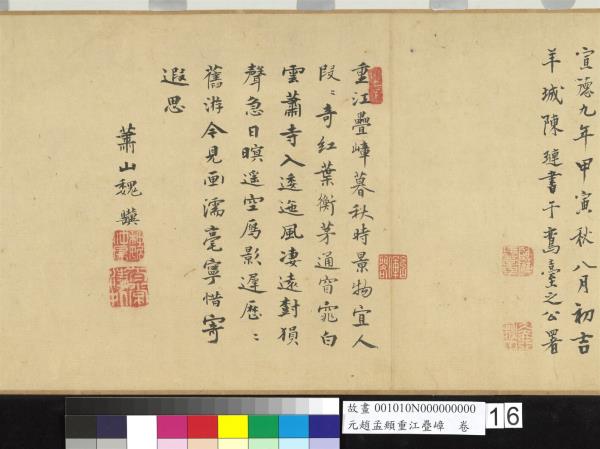 宣德九年甲寅秋八月初吉
羊城陳璉書于鸞臺之公署
重江疊嶂暮秋時景物宜人
段〻奇紅葉衡茅通窅窕白
雲蕭寺入逶迤風凄遠樹猿
聲急日暝遙空鴈影遲歷〻
舊游今見画濡毫寧惜寄
遐思
蕭山魏驥
故畫 001010N000000000
元趙孟頫重江疊嶂 卷
16